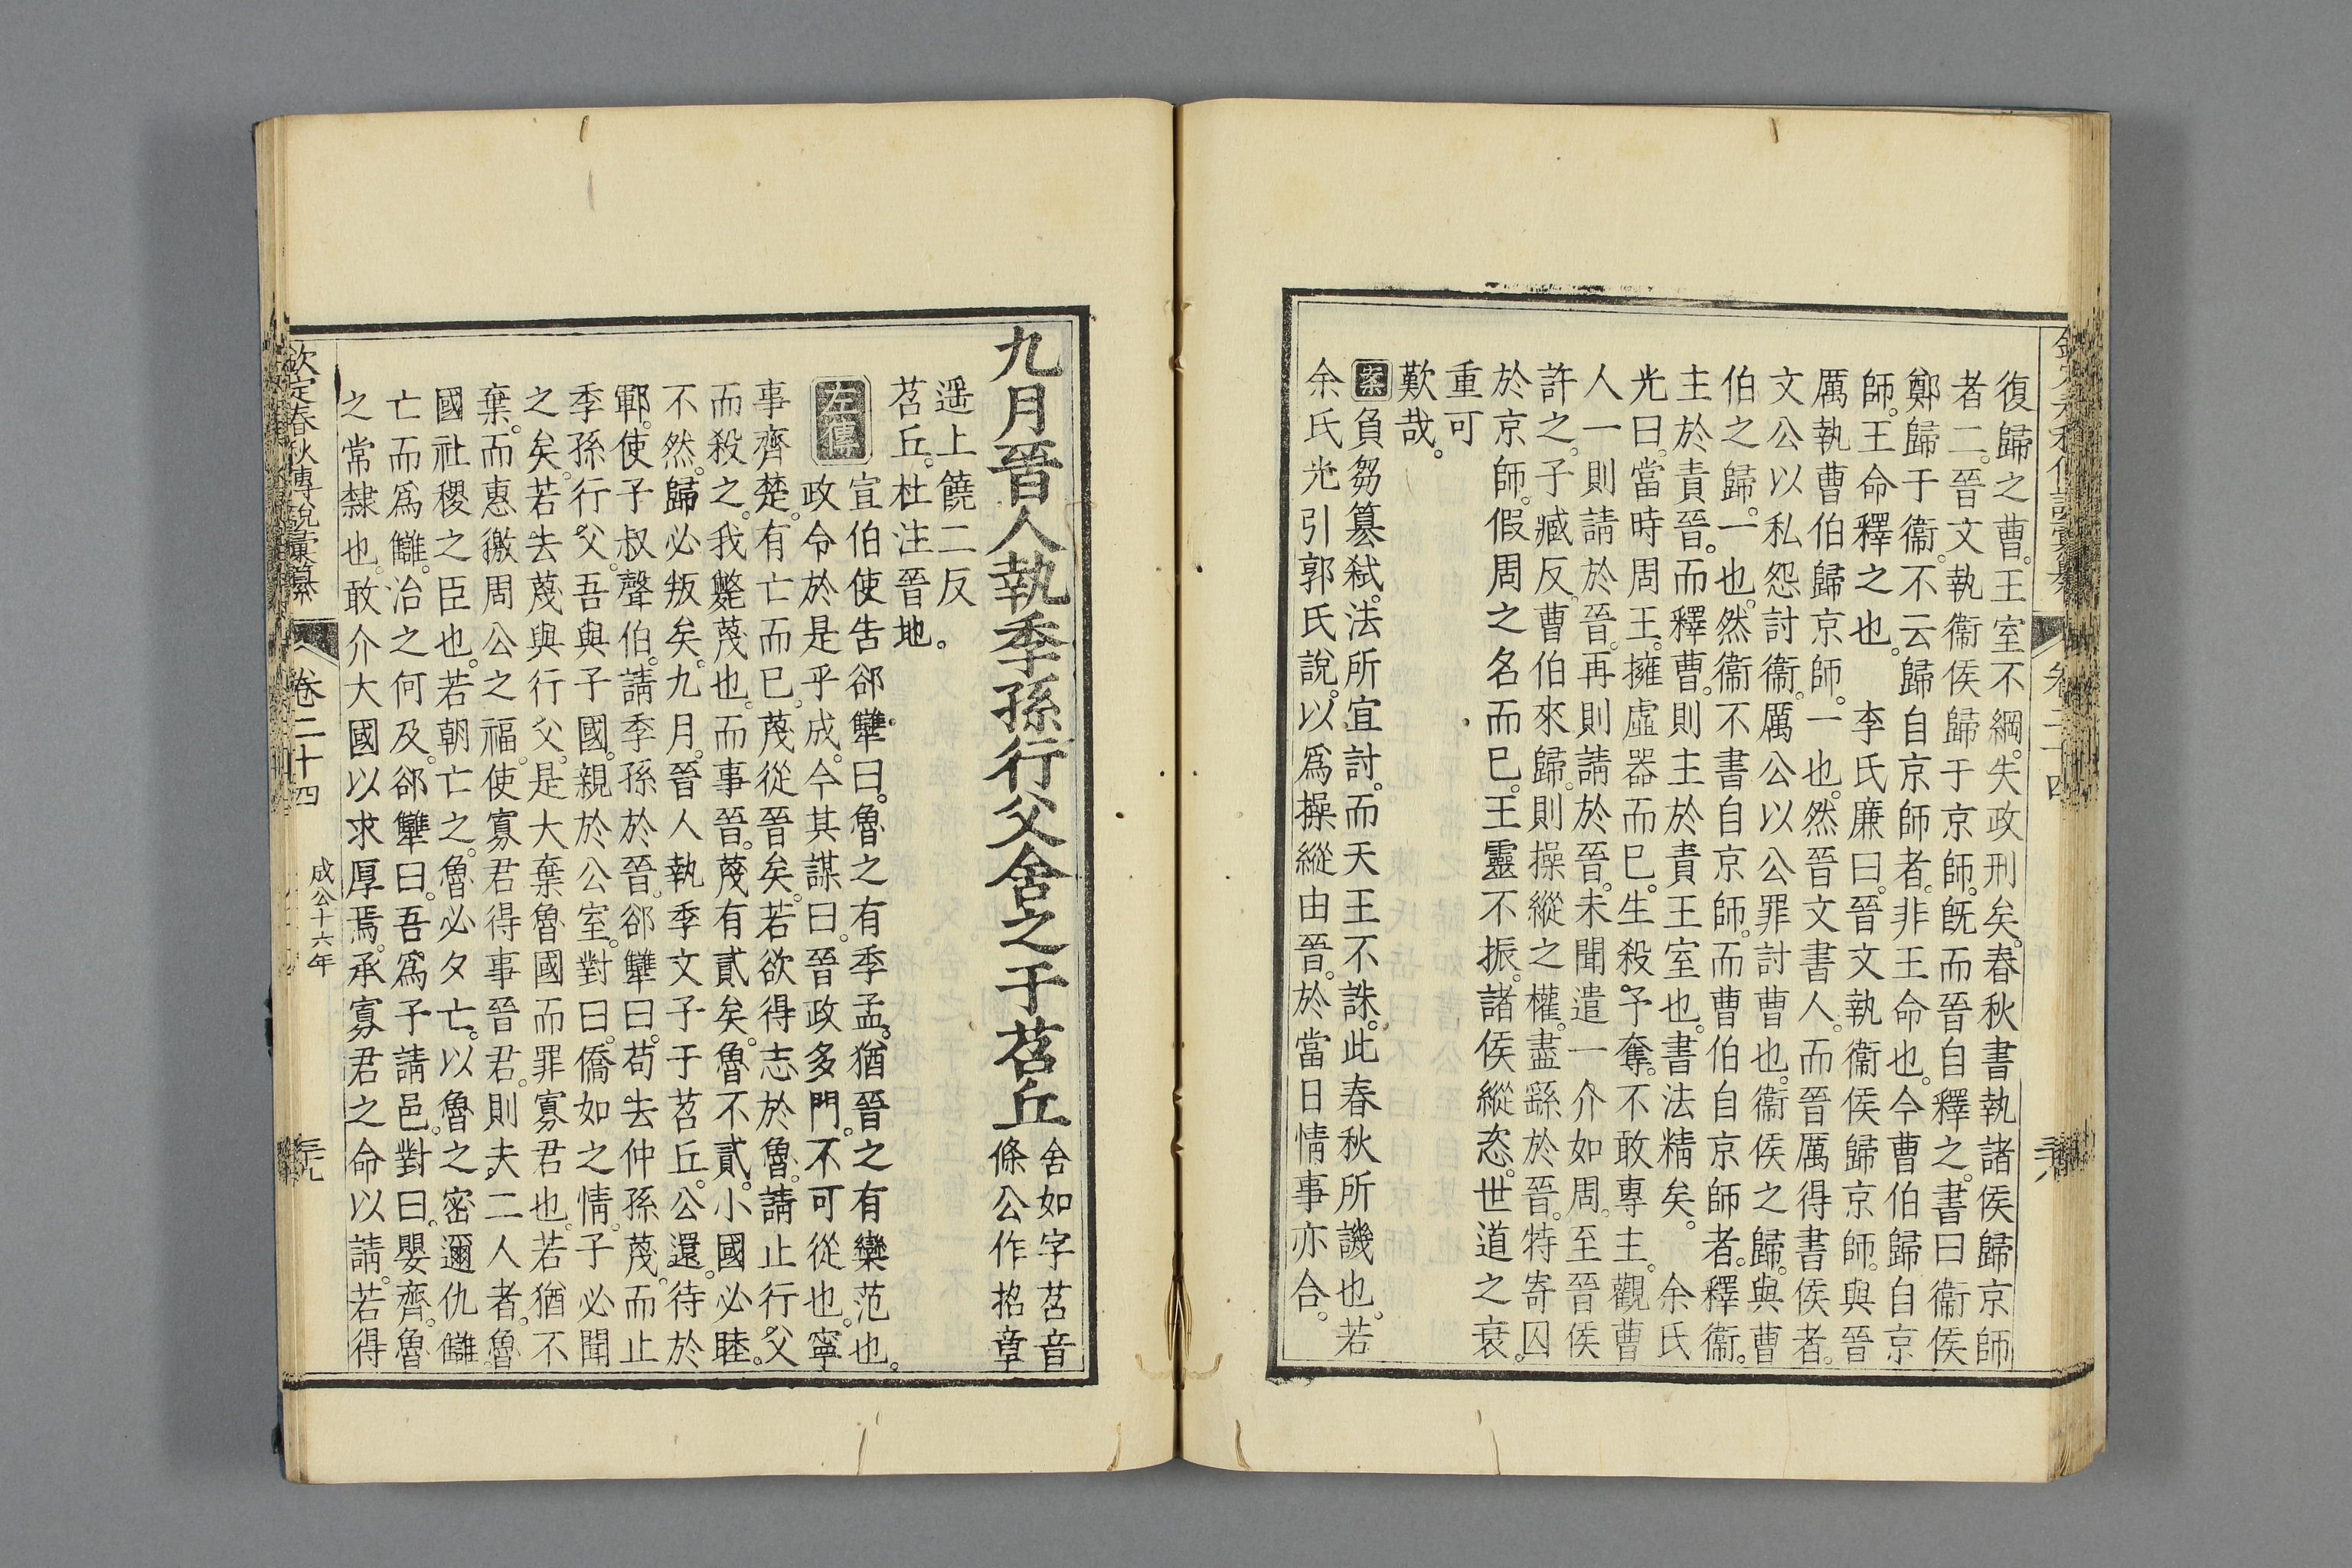 復歸之曹。王室不綱。失政刑矣。春秋書執諸侯歸京師
者二。晉文執衞侯歸于京師。旣而晉自釋之。書曰衞侯
鄭歸于衞。不云歸自京師者。非王命也。今曹伯歸自京
師。王命釋之也。 李氏廉曰。晉文執衞侯歸京師。與晉
厲執曹伯歸京師。一也。然晉文書人。而晉厲得書侯者。
文公以私怨討衞。厲公以公罪討曹也。衞侯之歸。與曹
伯之歸。一也。然衞不書自京師。而曹伯自京師者。釋衞。
主於責晉。而釋曹。則主於責王室也。書法精矣。 余氏
光曰。當時周王。擁虛器而已。生殺予奪。不敢專主。觀曹
人一則請於晉。再則請於晉。未聞遣一介如周。至晉侯
許之。子臧反。曹伯來歸。則操縱之權。盡繇於晉。特寄囚
於京師。假周之名而已。王靈不振。諸侯縱恣。世道之衰。
重可
歎哉。
案負芻篡弒。法所宜討。而天王不誅。此春秋所譏也。若
余氏光引郭氏說。以爲操縱由晉。於當日情事亦合。
九月晉人執季孫行父舍之于苕丘
舍如字苕音
條公作招章
遥上饒二反。
苕丘。杜注晉地。
左傳
宣伯使告郤犫曰。魯之有季孟。猶晉之有欒范也。
政令於是乎成。今其謀曰。晉政多門。不可從也。寧
事齊楚。有亡而已。蔑從晉矣。若欲得志於魯。請止行父
而殺之。我斃蔑也。而事晉。蔑有貳矣。魯不貳。小國必睦。
不然。歸必叛矣。九月。晉人執季文子于苕丘。公還。待於
鄆。使子叔聲伯。請季孫於晉。郤犫曰。苟去仲孫蔑。而止
季孫行父。吾與子國。親於公室。對曰。僑如之情。子必聞
之矣。若去蔑與行父。是大棄魯國而罪寡君也。若猶不
棄。而惠徼周公之福。使寡君得事晉君。則夫二人者。魯
國社稷之臣也。若朝亡之。魯必夕亡。以魯之密邇仇讎。
亡而爲讎。治之何及。郤犫曰。吾爲子請邑。對曰。嬰齊。魯
之常隸也。敢介大國以求厚焉。承寡君之命以請。若得
欽定春秋傳說彙纂
卷二十四
成公十六年